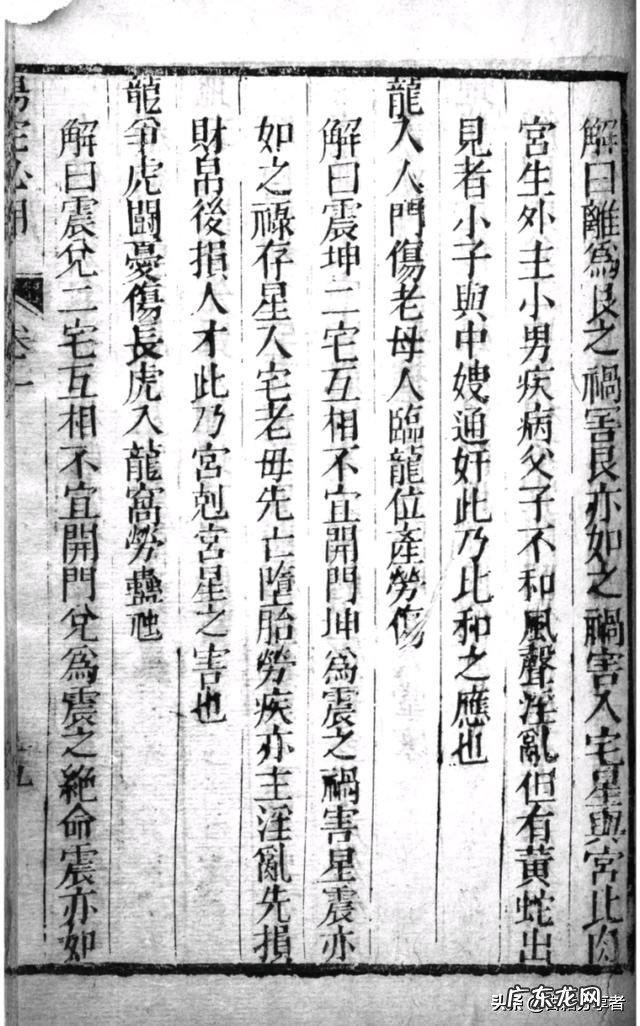 解曰離為艮之禍害艮亦如之禍害入宅星與宮比內
宮生外主小男疾病父子不和風聲淫亂但有黃蛇出
見者小子與中嫂通奸此乃比和之應也
龍入人門傷老母人臨龍位產勞傷
解曰震坤二宅互相不宜開門坤為震之禍害星震亦
如之祿存星入宅老母先亡墮胎勞疾亦主淫亂先損
財帛後損人才此乃宮剋宮星之害也
龍爭虎鬪憂傷長虎入龍窩勞蠱瘟
解曰震兌二宅互相不宜開門兌為震之絶命震亦如
卷一
頭条
分享者
广东龙网